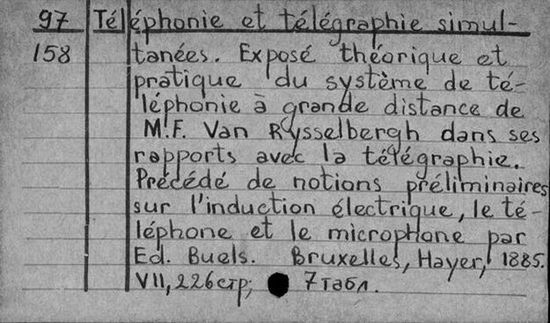 97 Téléphonie et télégraphie simul-
158 tanées. Exposé théorique et
pratique du système de té-
léphonie à grande distance de
M.F. Van Rysselbergh dans ses
rapports avec la télégraphie.
Précédé de notions préliminaires
sur l'induction électrique, le té-
léphone et le microphone par
Ed. Buels. Bruxelles, Hayer, 1885.
VII, 226 стр; 7 табл.